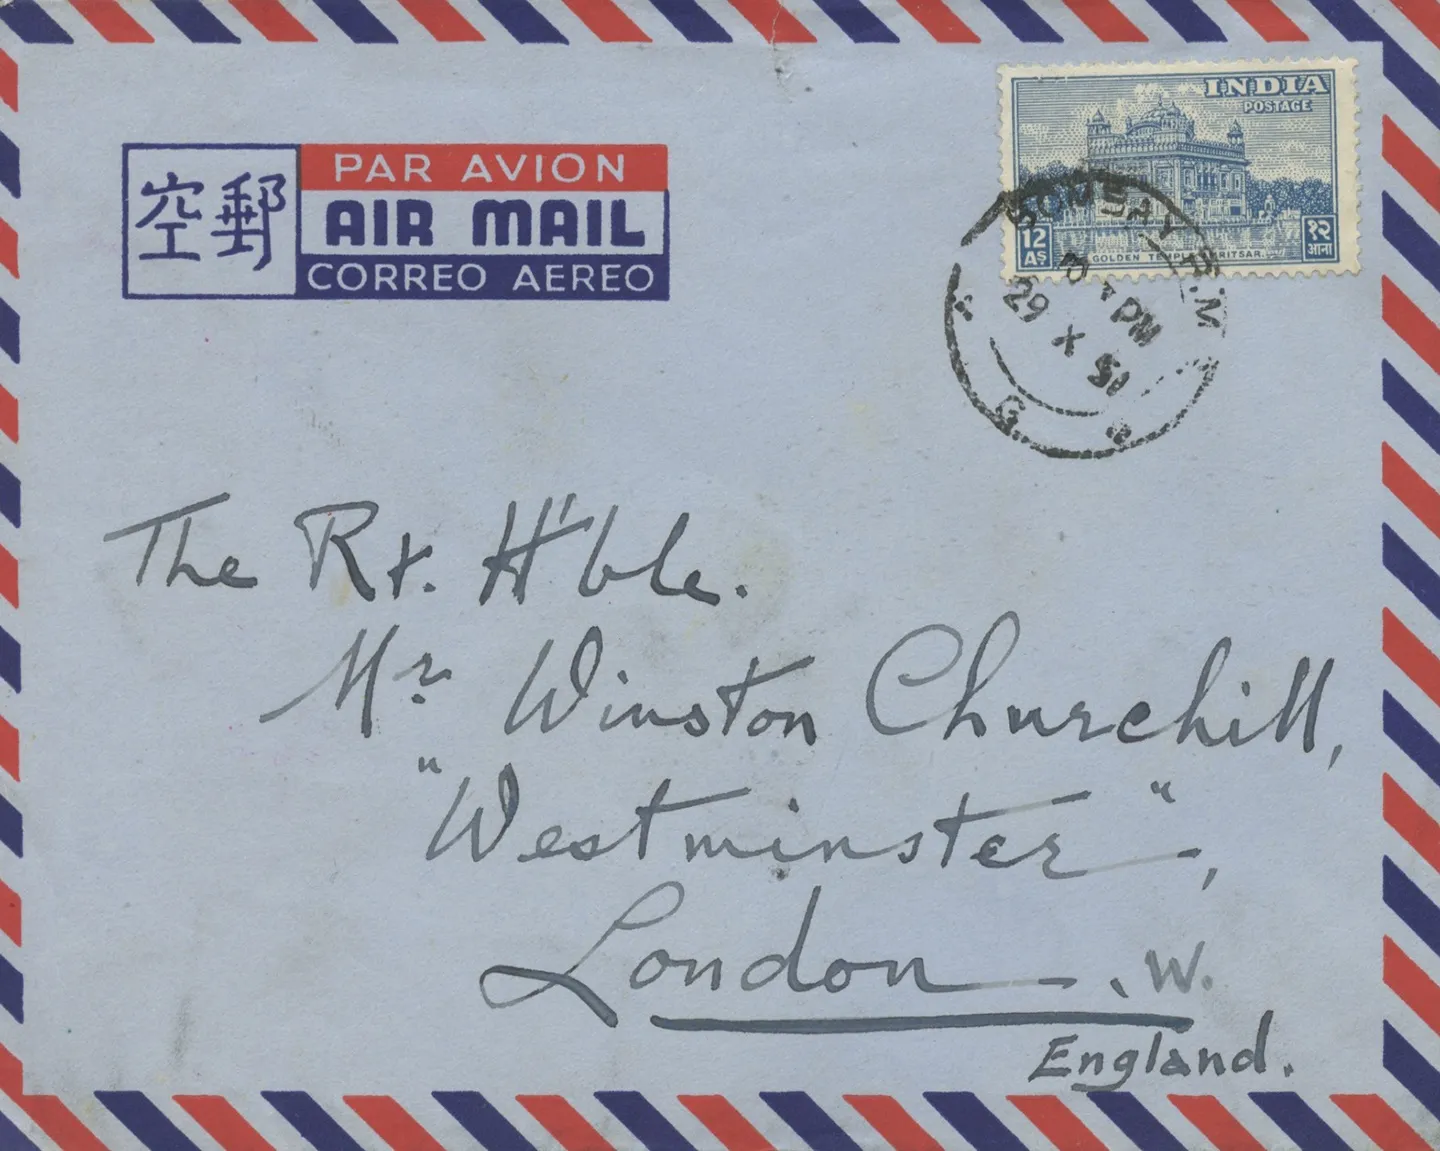 PAR AVION
空郵 AIR MAIL
CORREO AEREO
INDIA
POSTAGE
12 As
१२ आना
GOLDEN
BOMBAY G.P.O.
PM
29 X 51
The Rt. H'ble.
Mr. Winston Churchill,
"Westminster",
London. W.
England.